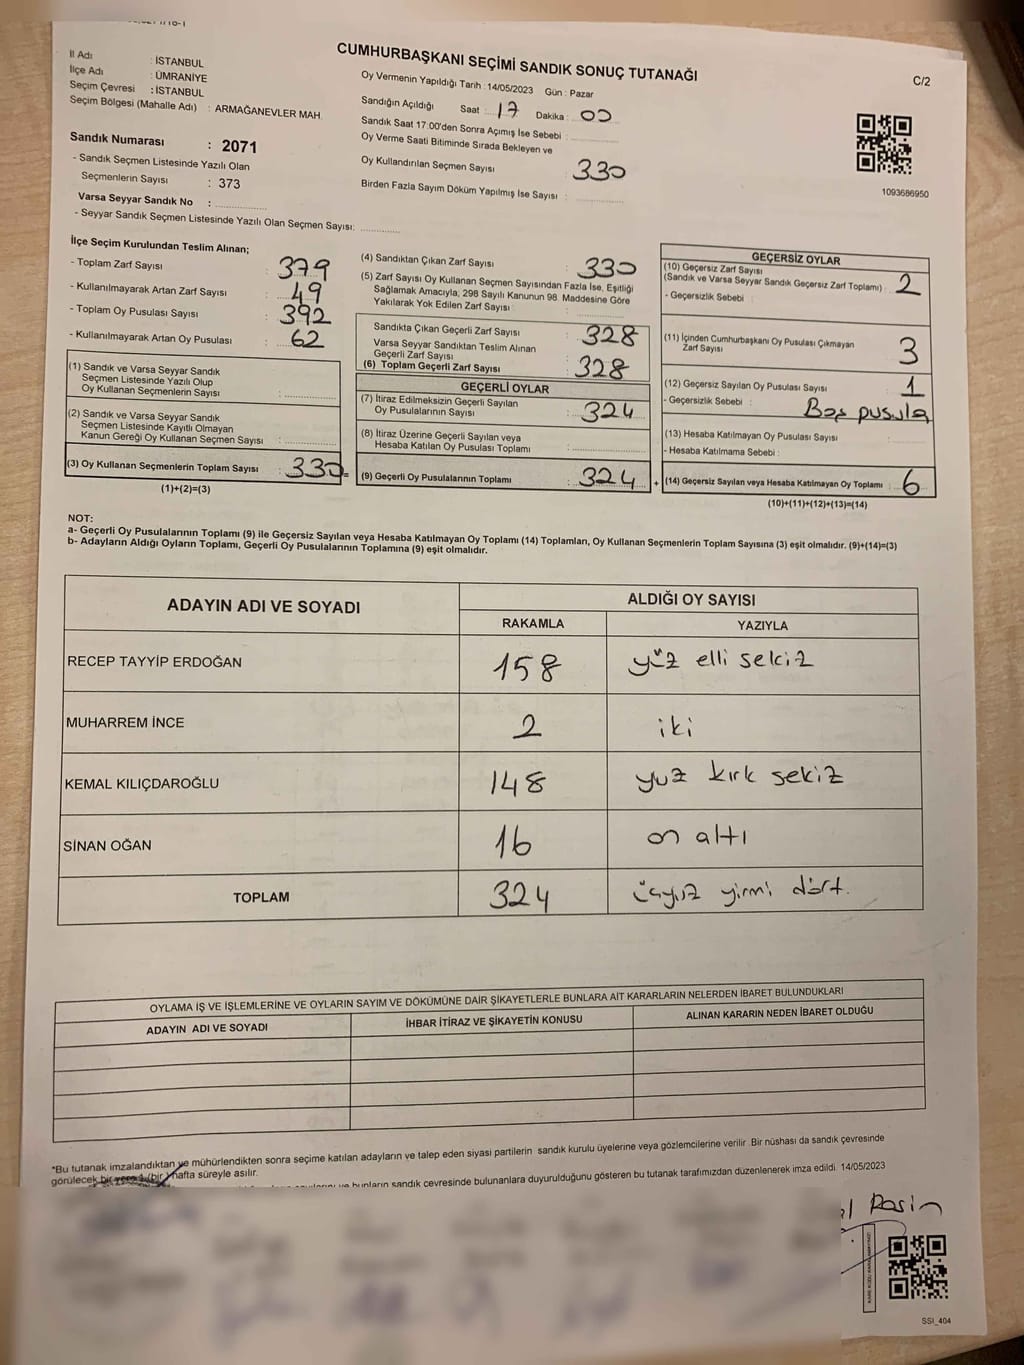 CUMHURBAŞKANI SEÇİMİ SANDIK SONUÇ TUTANAĞI
C/2
İl Adı : İSTANBUL
İlçe Adı : ÜMRANİYE
Seçim Çevresi : İSTANBUL
Seçim Bölgesi (Mahalle Adı) : ARMAĞANEVLER MAH.
Sandık Numarası : 2071
- Sandık Seçmen Listesinde Yazılı Olan
Seçmenlerin Sayısı : 373
Varsa Seyyar Sandık No :
- Seyyar Sandık Seçmen Listesinde Yazılı Olan Seçmen Sayısı:
Oy Vermenin Yapıldığı Tarih : 14/05/2023 Gün : Pazar
Sandığın Açıldığı Saat : 17 Dakika : 00
Sandık Saat 17:00'den Sonra Açımış İse Sebebi :
Oy Verme Saati Bitiminde Sırada Bekleyen ve
Oy Kullandırılan Seçmen Sayısı : 330
Birden Fazla Sayım Döküm Yapılmış İse Sayısı :
1093686950
İlçe Seçim Kurulundan Teslim Alınan;
- Toplam Zarf Sayısı : 379
- Kullanılmayarak Artan Zarf Sayısı : 49
- Toplam Oy Pusulası Sayısı : 392
- Kullanılmayarak Artan Oy Pusulası : 62
(1) Sandık ve Varsa Seyyar Sandık
Seçmen Listesinde Yazılı Olup
Oy Kullanan Seçmenlerin Sayısı :
(2) Sandık ve Varsa Seyyar Sandık
Seçmen Listesinde Kayıtlı Olmayan
Kanun Gereği Oy Kullanan Seçmen Sayısı :
(3) Oy Kullanan Seçmenlerin Toplam Sayısı : 330 =
(1)+(2)=(3)
(4) Sandıktan Çıkan Zarf Sayısı : 330
(5) Zarf Sayısı Oy Kullanan Seçmen Sayısından Fazla İse, Eşitliği
Sağlamak Amacıyla; 298 Sayılı Kanunun 98. Maddesine Göre
Yakılarak Yok Edilen Zarf Sayısı :
Sandıkta Çıkan Geçerli Zarf Sayısı : 328
Varsa Seyyar Sandıktan Teslim Alınan
Geçerli Zarf Sayısı :
(6) Toplam Geçerli Zarf Sayısı : 328
GEÇERLİ OYLAR
(7) İtiraz Edilmeksizin Geçerli Sayılan
Oy Pusulalarının Sayısı : 324
(8) İtiraz Üzerine Geçerli Sayılan veya
Hesaba Katılan Oy Pusulası Toplamı :
(9) Geçerli Oy Pusulalarının Toplamı : 324 +
GEÇERSİZ OYLAR
(10) Geçersiz Zarf Sayısı
(Sandık ve Varsa Seyyar Sandık Geçersiz Zarf Toplamı) : 2
- Geçersizlik Sebebi :
(11) İçinden Cumhurbaşkanı Oy Pusulası Çıkmayan
Zarf Sayısı : 3
(12) Geçersiz Sayılan Oy Pusulası Sayısı : 1
- Geçersizlik Sebebi : Boş pusula
(13) Hesaba Katılmayan Oy Pusulası Sayısı :
- Hesaba Katılmama Sebebi :
(14) Geçersiz Sayılan veya Hesaba Katılmayan Oy Toplamı : 6
(10)+(11)+(12)+(13)=(14)
NOT:
a- Geçerli Oy Pusulalarının Toplamı (9) ile Geçersiz Sayılan veya Hesaba Katılmayan Oy Toplamı (14) Toplamları, Oy Kullanan Seçmenlerin Toplam Sayısına (3) eşit olmalıdır. (9)+(14)=(3)
b- Adayların Aldığı Oyların Toplamı, Geçerli Oy Pusulalarının Toplamına (9) eşit olmalıdır.
ADAYIN ADI VE SOYADI
ALDIĞI OY SAYISI
RAKAMLA YAZIYLA
RECEP TAYYİP ERDOĞAN 158 yüz elli sekiz
MUHARREM İNCE 2 iki
KEMAL KILIÇDAROĞLU 148 yuz kırk sekiz
SİNAN OĞAN 16 on altı
TOPLAM 324 üçyüz yirmi dört.
OYLAMA İŞ VE İŞLEMLERİNE VE OYLARIN SAYIM VE DÖKÜMÜNE DAİR ŞİKAYETLERLE BUNLARA AİT KARARLARIN NELERDEN İBARET BULUNDUKLARI
ADAYIN ADI VE SOYADI İHBAR İTİRAZ VE ŞİKAYETİN KONUSU ALINAN KARARIN NEDEN İBARET OLDUĞU
*Bu tutanak imzalandıktan ve mühürlendikten sonra seçime katılan adayların ve talep eden siyasi partilerin sandık kurulu üyelerine veya gözlemcilerine verilir. Bir nüshası da sandık çevresinde
görülecek bir yere 1 (bir) hafta süreyle asılır.
bunların sandık çevresinde bulunanlara duyurulduğunu gösteren bu tutanak tarafımızdan düzenlenerek imza edildi. 14/05/2023
SSI_404